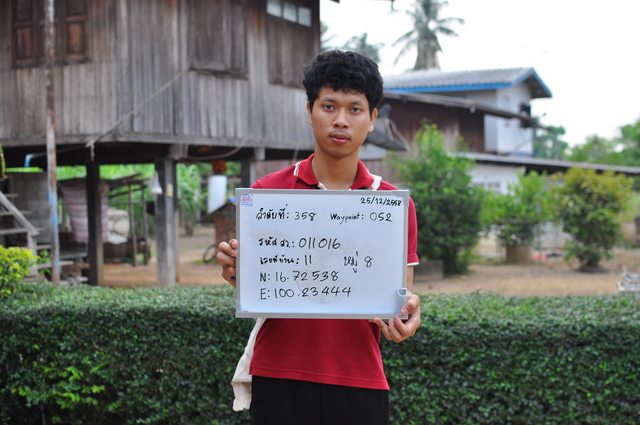 25/12/2558
ลำดับที่: 358 Waypoint: 052
รหัส สว.: 011016
เลขที่บ้าน: 11 หมู่ 8
N: 16.72538
E: 100.23444